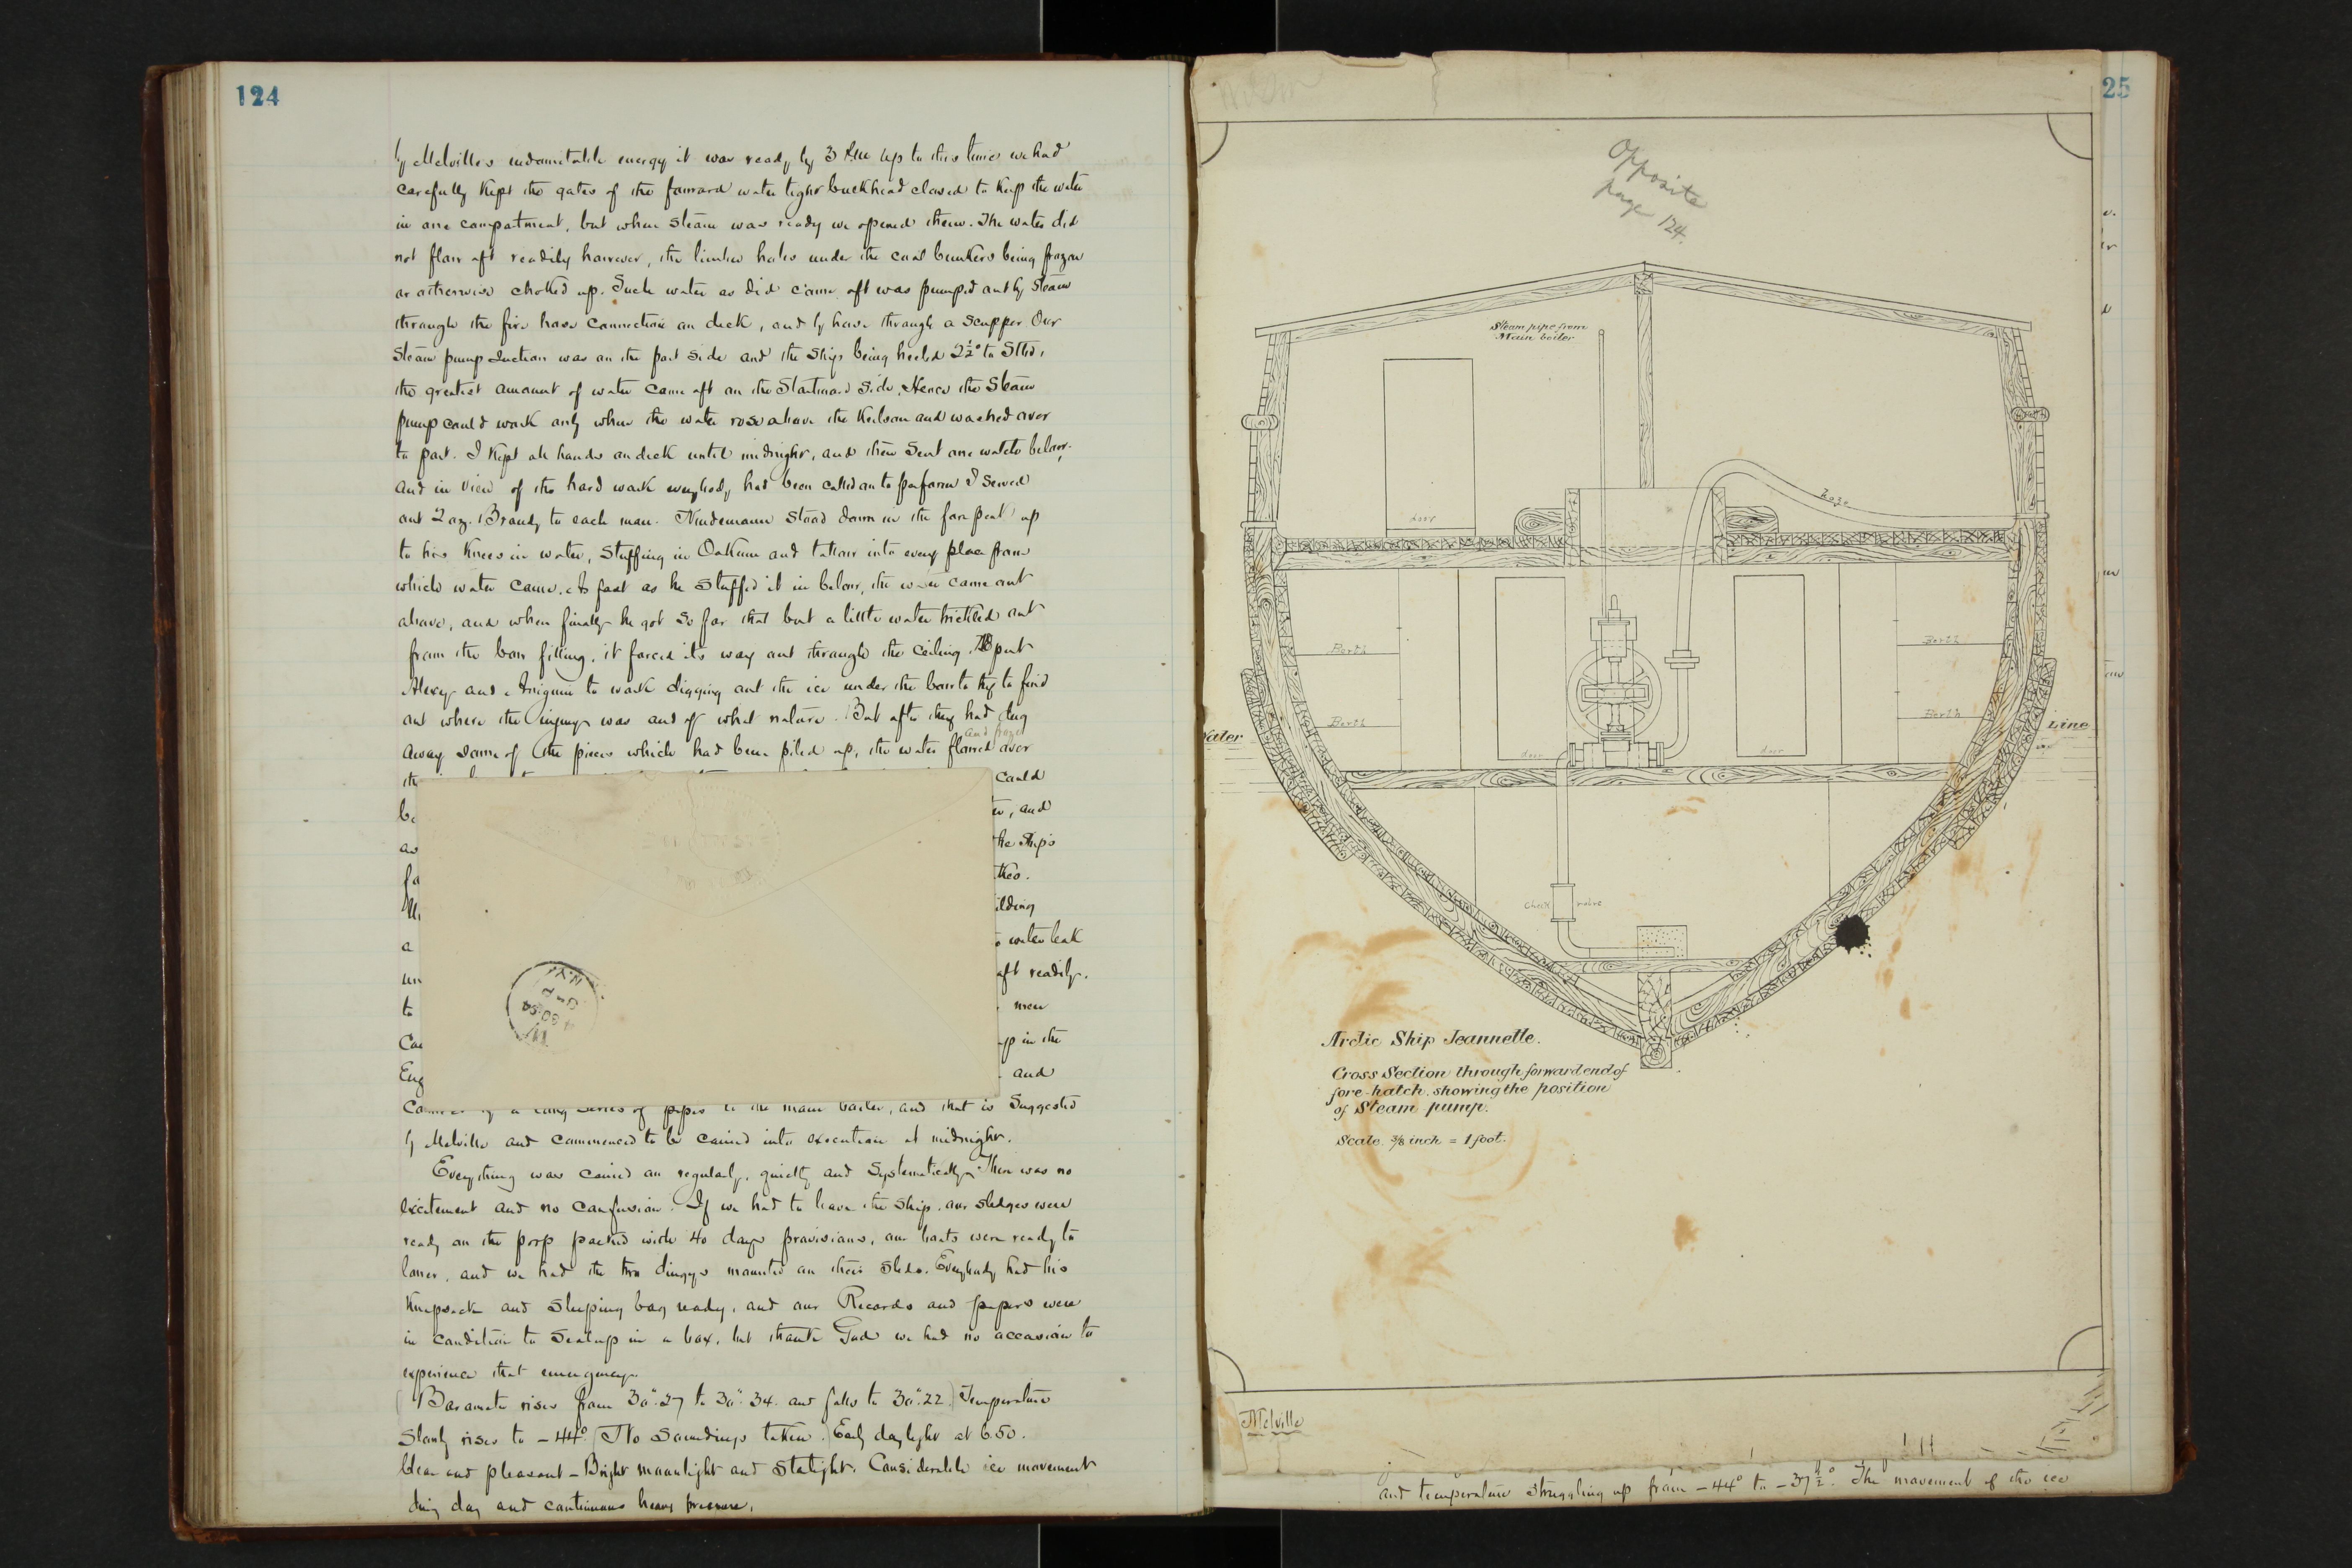 124
by Melville's indomitable energy it was ready by 3 P.M. Up to this time we had
carefully kept the gates of the forward water tight buckhead closed to keep the water
in one compartment, but when steam was ready we opened them. The water did
not flow aft readily however, the limber holes under the coal bunkers being frozen
or otherwise choked up. Such water as did come aft was pumped out by steam
through the fire hose connection on deck, and by hose through a scupper Our
steam pump suction was on the port side and the ship being heeled 2½° to Stbd,
the greatest amount of water came aft on the Starboard side. Hence the Steam
pump could work only when the water rose above the Keelson and washed over
to port. I kept all hands on deck until midnight, and then sent one watch below,
and in view of the hard work everybody had been called on to perform I served
out 2 oz. Brandy to each man. Nindemann stood down in the fore peak up
to his knees in water, stuffing in Oakum and tallow into every place from
which water came. As fast as he stuffed it in below, the water came out
above, and when finally he got so far that but a little water trickled out
from the bow filling, it forced its way out through the ceiling. put
Alexey and Aniguin to work digging out the ice under the bow to try to find
out where the injury was and of what nature. But after they had dug
and froze
away some of the pieces which had been piled up, the water flowed over
could
and
the ship's
water leak
aft readily.
to men
up in the
Eng and
of a long series of pipes to the main boiler, and that is suggested
by Melville and commenced to be carried into execution at midnight.
Everything was carried on regularly, quietly and systematically. There was no
excitement and no confusion. If we had to leave the ship, our sledges were
ready on the poop packed with 40 days provisions, our boats were ready to
lower, and we had the two dingys mounted on their sleds. Everybody had his
Knapsack and sleeping bag ready, and our Records and papers were
in condition to seal up in a box, but thank God we had no occasion to
experience that emergency.
(Barometer rises from 30".27 to 30".34. and falls to 30".22.) Temperature
slowly rises to -44°. (No soundings taken.) Early daylight at 6.50.
Clear and pleasant - Bright moonlight and starlight. Considerable ice movement
during day and continuous heavy pressure.
25
Opposite
page 124.
Steam pipe from
Main boiler
hose
door
Berth
Berth
Berth
Berth
Water
Line
door
door
Check valve
Arctic Ship Jeannette.
Cross Section through forward end of
fore-hatch, showing the position
of Steam pump.
Scale. ⅜ inch = 1 foot.
Melville
and temperature struggling up from -44° to -37½°. The movement of the ice